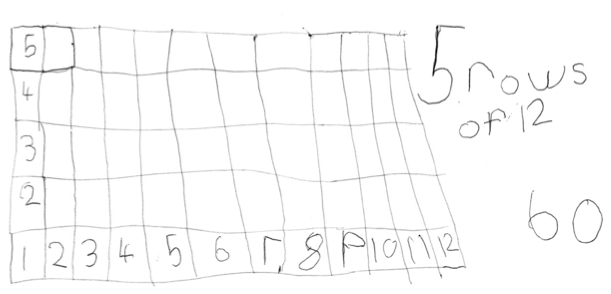 5
4
3
2
1 2 3 4 5 6 7 8 9 10 11 12
5 rows
of 12
60